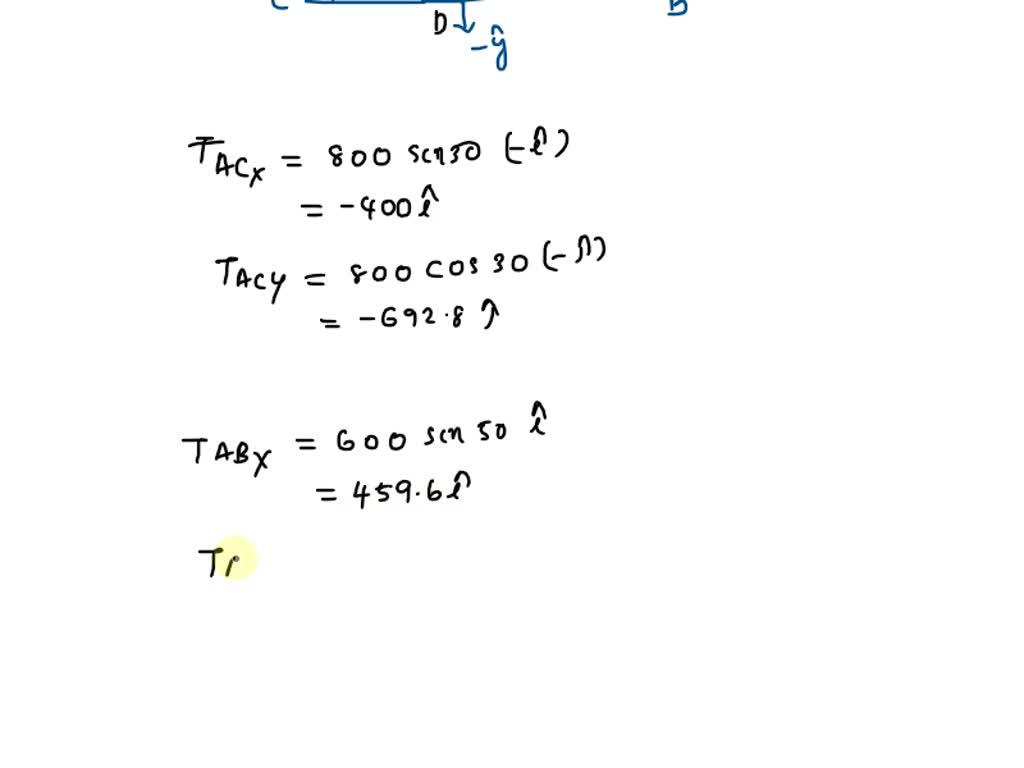 C D B
-ŷ
TACx = 800 sin30 (-î)
= -400 î
TACY = 800 cos 30 (-ĵ)
= -692.8 ĵ
TABX = 600 sin 50 î
= 459.6 î
TA